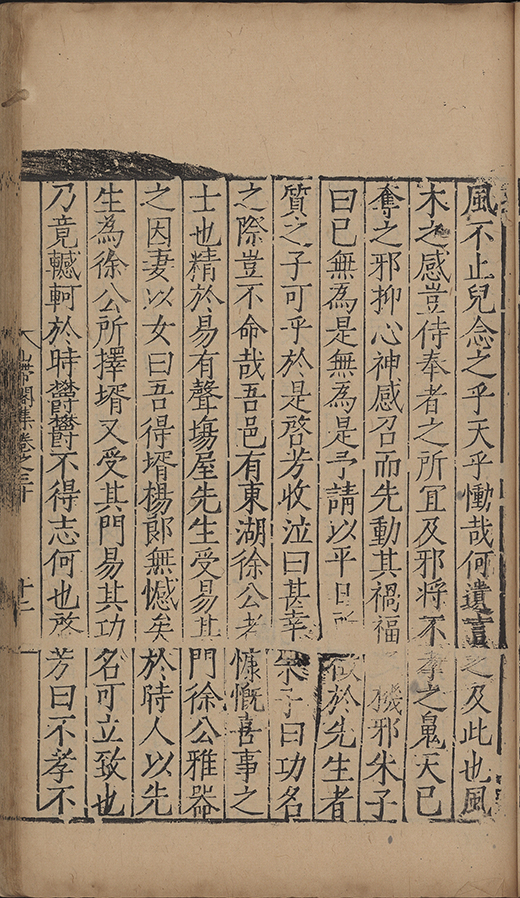 風不止兒念之乎天乎慟哉何遺言之及此也風
木之感豈侍奉者之所冝及邪將不孝之鬼天已
奪之邪抑心神感召而先動其禍福機邪朱子
曰已無為是無為是予請以平日所於先生者
質之子可乎於是啓芳收泣曰甚幸朱子曰功名
之際豈不命哉吾邑有東湖徐公者慷慨喜事之
士也精於易有聲塲屋先生受易其門徐公雅器
之因妻以女曰吾得壻楊郎無憾矣於時人以先
生為徐公所擇壻又受其門易其功名可立致也
乃竟轗軻於時欝欝不得志何也啓芳曰不孝不
集卷之三十
十二